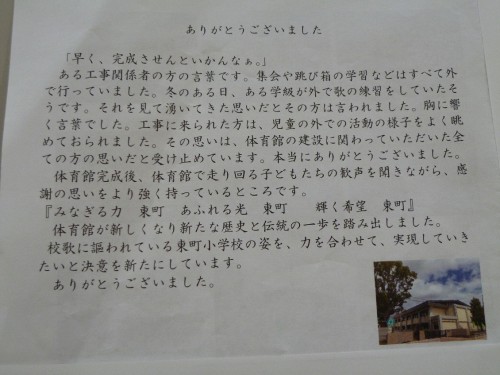 ありがとうございました
「早く、完成させんといかんなぁ。」
ある工事関係者の方の言葉です。集会や跳び箱の学習などはすべて外
で行っていました。冬のある日、ある学級が外で歌の練習をしていたそ
うです。それを見て湧いてきた思いだとその方は言われました。胸に響
く言葉でした。工事に来られた方は、児童の外での活動の様子をよく眺
めておられました。その思いは、体育館の建設に関わっていただいた全
ての方の思いだと受け止めています。本当にありがとうございました。
体育館完成後、体育館で走り回る子どもたちの歓声を聞きながら、感
謝の思いをより強く持っているところです。
『みなぎる力　東町　あふれる光　東町　　輝く希望　東町』
体育館が新しくなり新たな歴史と伝統の一歩を踏み出しました。
校歌に謳われている東町小学校の姿を、力を合わせて、実現していき
たいと決意を新たにしています。
ありがとうございました。